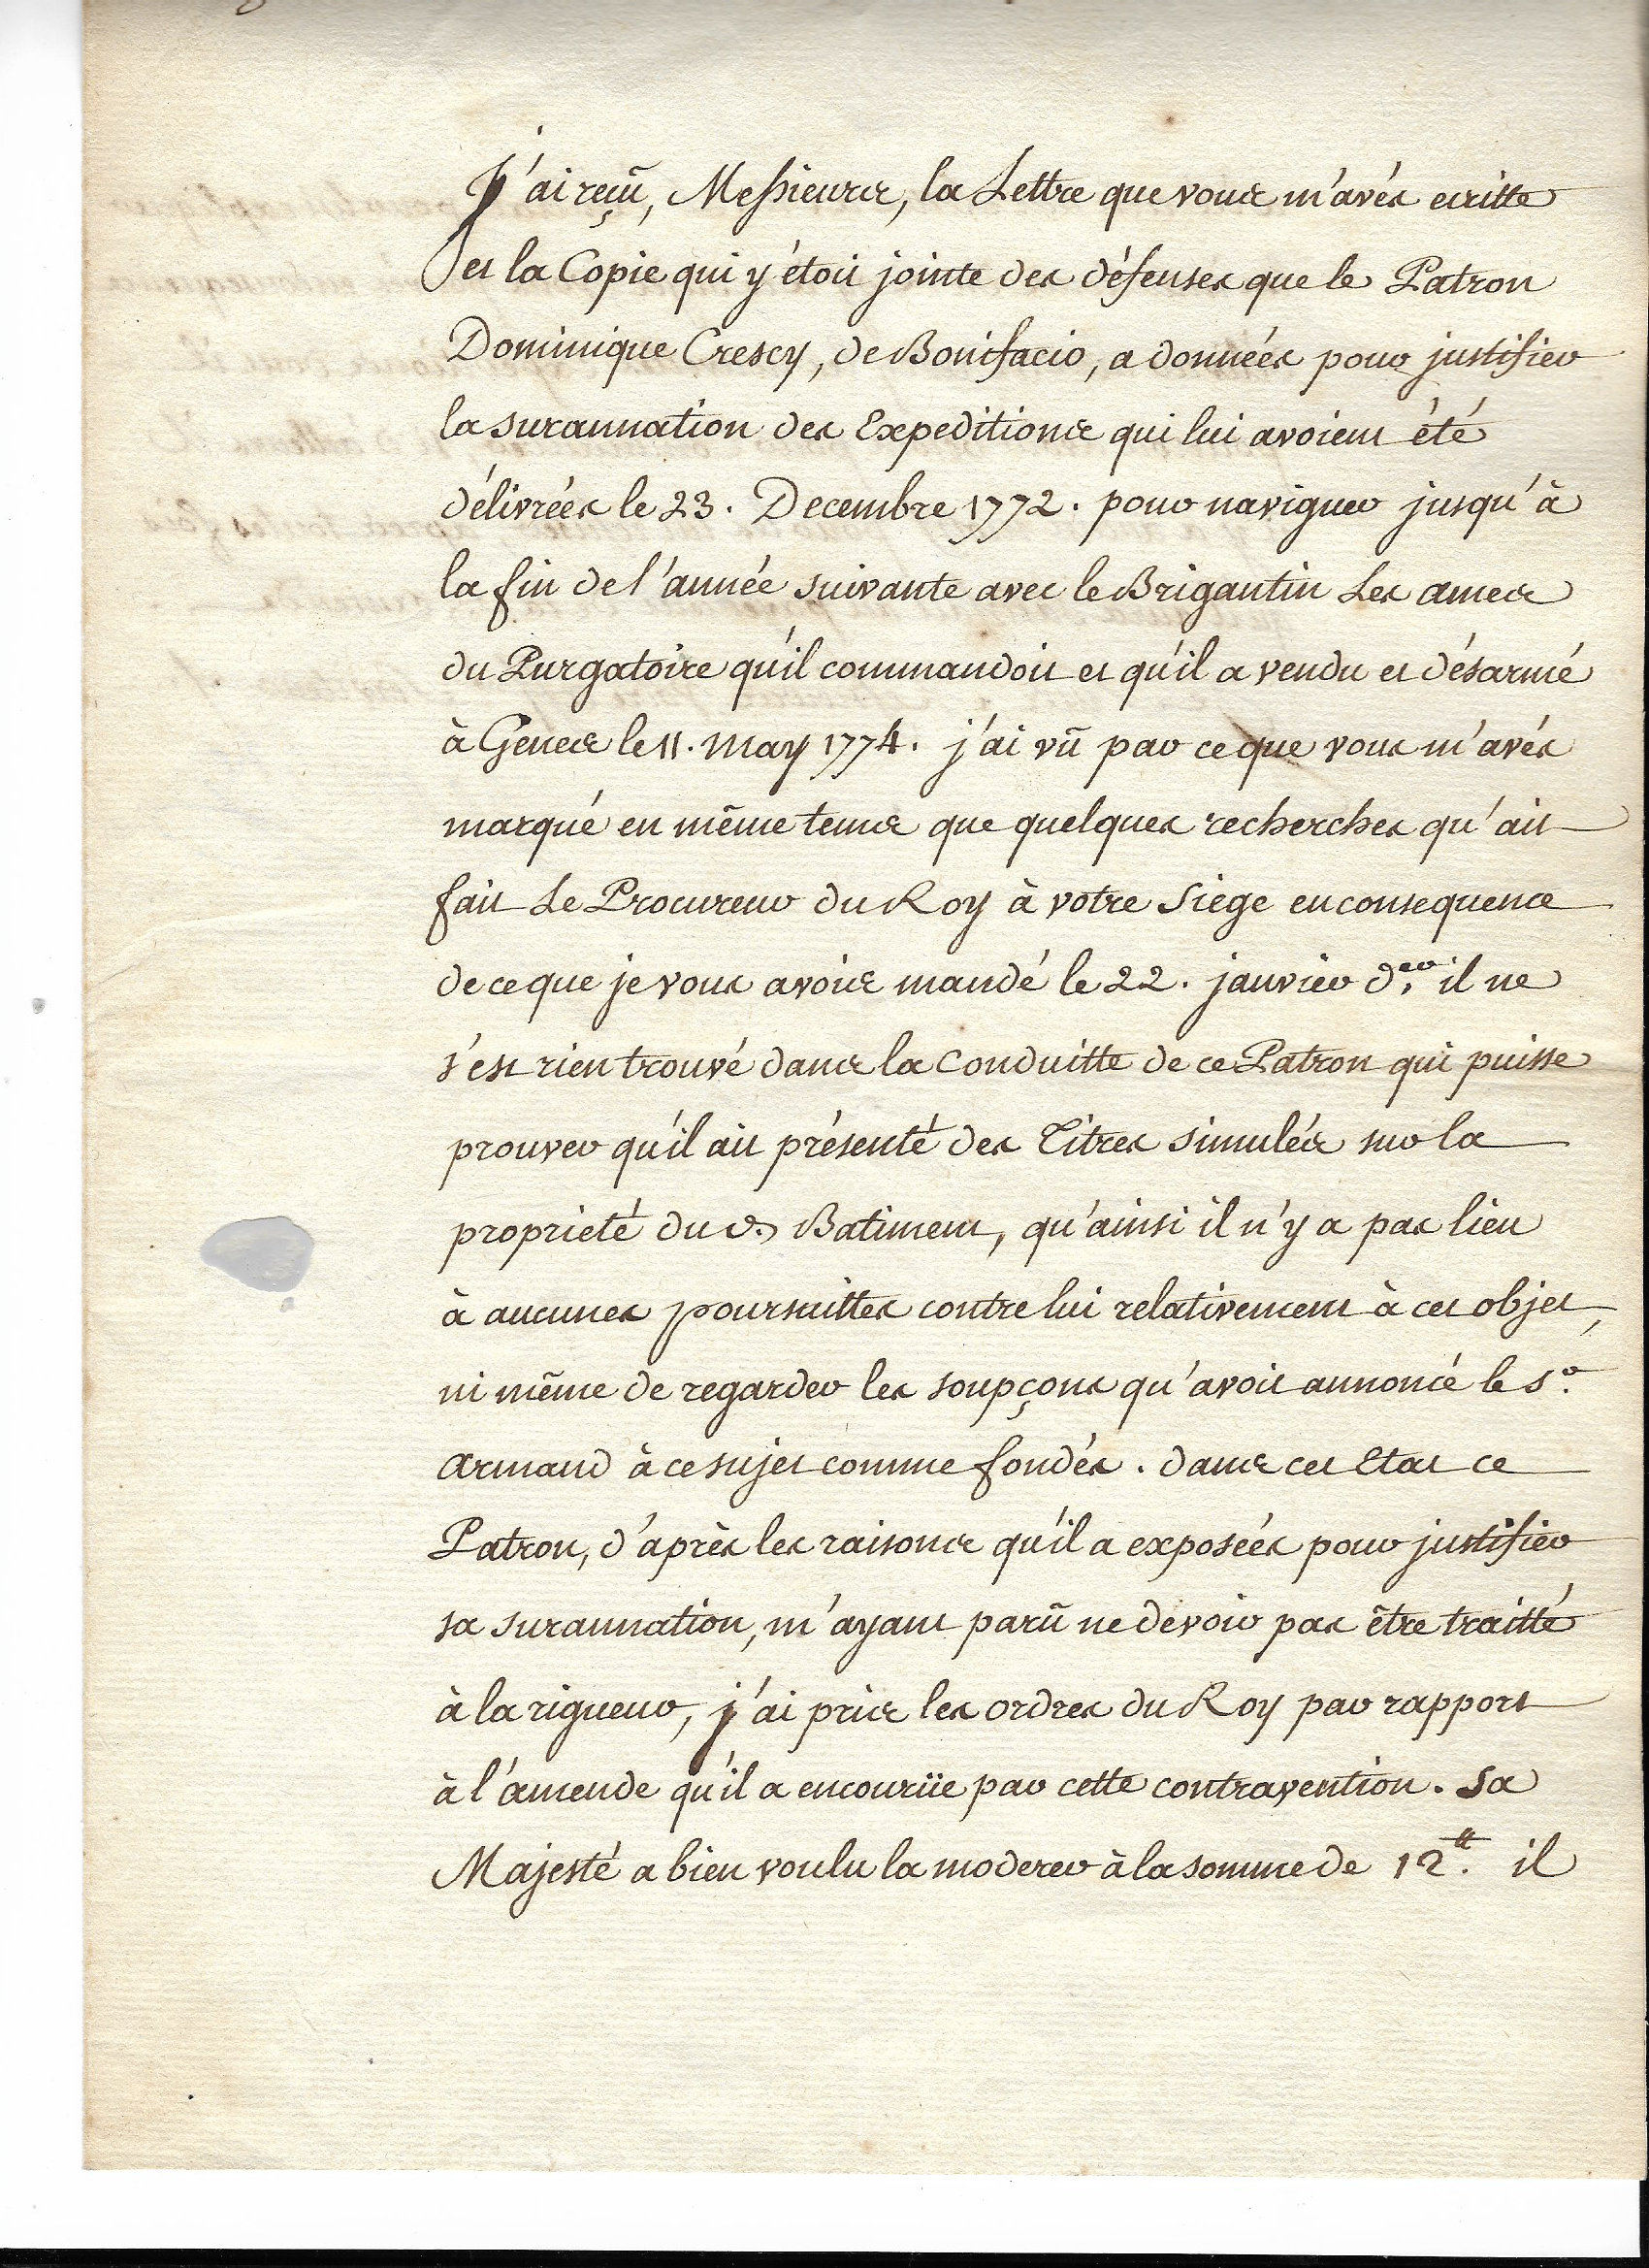 J'ai reçû, Messieurs, la Lettre que vous m'avés ecritte
et la Copie qui y étoit jointe des défenses que le Patron
Dominique Crescy, de Bonifacio, a données pour justifier
la surannation des Expeditions qui lui avoient été
délivrées le 23. Decembre 1772. pour naviguer jusqu'à
la fin de l'année suivante avec le Brigantin Les ames
du Purgatoire qu'il commandoit et qu'il a vendu et désarmé
à Genes le 11. May 1774. j'ai vû par ce que vous m'avés
marqué en même tems que quelques recherches qu'ait
fait Le Procureur du Roy à votre Siege en consequence
de ce que je vous avois mandé le 22. janvier d.er il ne
s'est rien trouvé dans la Conduitte de ce Patron qui puisse
prouver qu'il ait présenté des Titres simulés sur la
proprieté du d. Batiment, qu'ainsi il n'y a pas lieu
à aucunes poursuittes contre lui relativement à cet objet,
ni même de regarder les soupçons qu'avoit annoncé le S.r
Armand à ce sujet comme fondés. dans cet Etat ce
Patron, d'après les raisons qu'il a exposées pour justifier
sa surannation, m'ayant parû ne devoir pas être traitté
à la rigueur, j'ai pris les ordres du Roy par rapport
à l'amende qu'il a encourüe par cette contravention. Sa
Majesté a bien voulu la moderer à la somme de 12.tt il